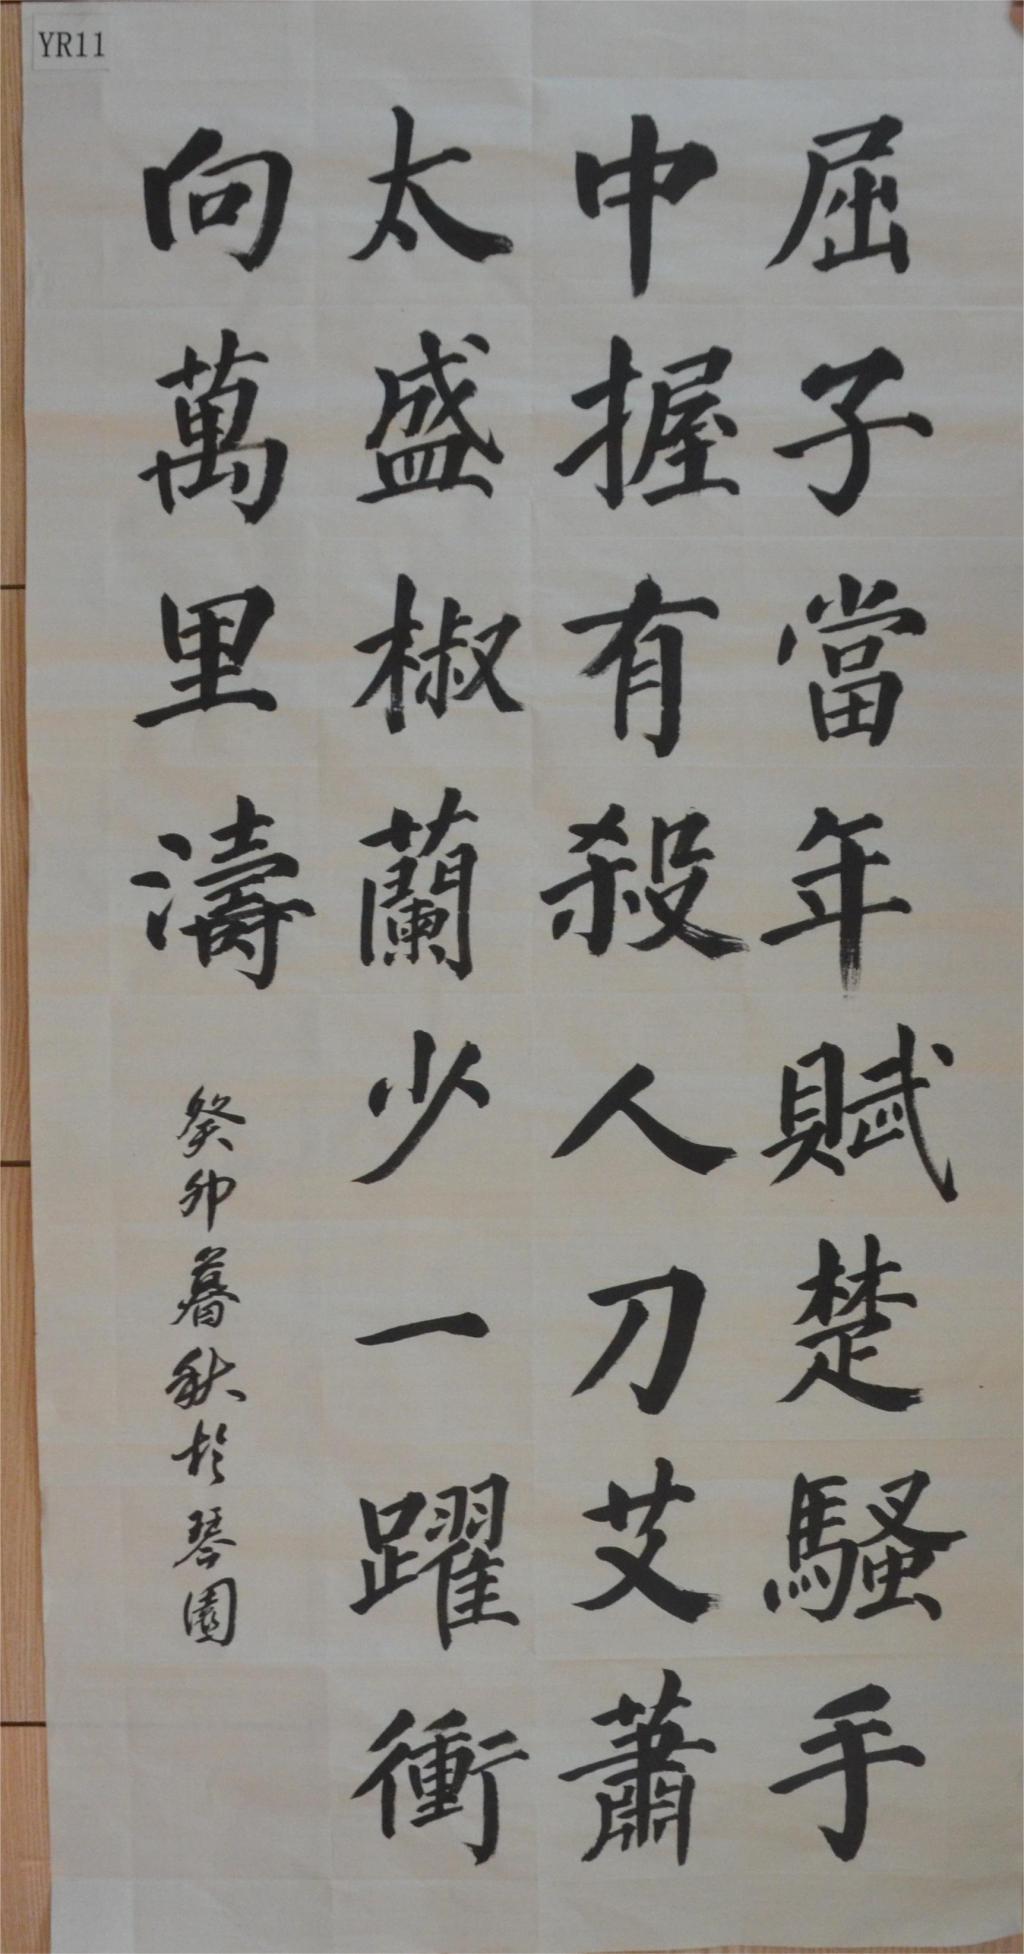 屈子當年賦楚騷手
中握有殺人刀艾蕭
太盛椒蘭少一躍衝
向萬里濤
癸卯暮秋於琴園
YR11